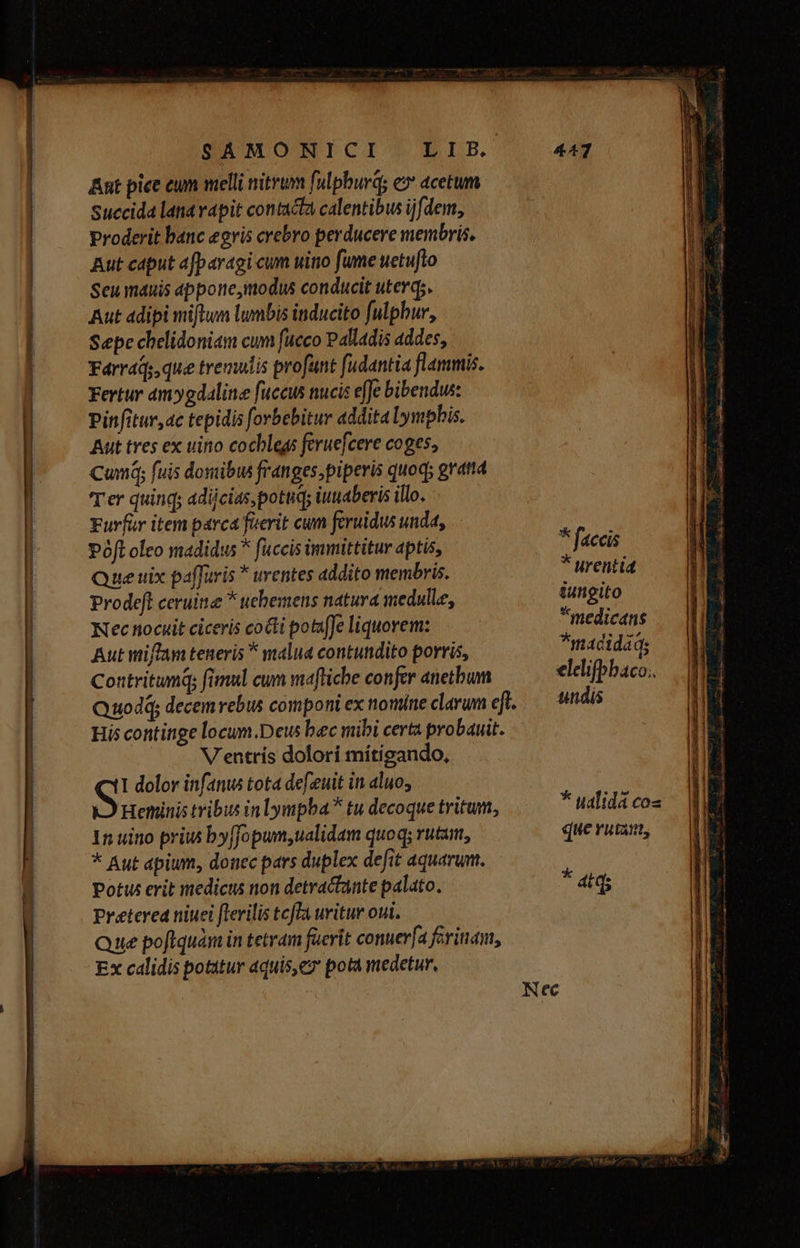 SAMONICI LIB. 447
Aut pice cum melli nitrum ſulphurq́; et acetum
Succida lana rapit contacta calentibus ijſdem,
Proderit hanc ægris crebro perducere membris.
Aut caput aſparagi cum uino ſume uetuſto
Seu mauis appone, modus conducit uterq;.
Aut adipi miſtum lumbis inducito ſulphur,
Sæpe chelidoniam cum ſucco Palladis addes,
Farraq́;, que tremulis profunt ſudantia flammis.
Fertur amygdalinæ ſuccus nucis eſſe bibendus:
Pinſitur, ac tepidis ſorbebitur addita lymphis.
Aut tres ex uino cochleas feruefcere coges,
Cumq́; ſuis domibus franges, piperis quoq; grana
Ter quinq; adijcias, potuq́; iuuaberis illo.
Furfur item parca fuerit cum feruidus unda,
Pòſt oleo madidus * ſuccis immittitur aptis,
Que uix paſſuris * urentes addito membris.
Prodeſt ceruinæ * uehemens natura medullæ,
Nec nocuit ciceris cocti potaſſe liquorem:
Aut miſtam teneris * malua contundito porris,
Contritumq́; ſimul cum maſtiche confer anethum
Quodq́; decem rebus componi ex nomine clarum eſt.
His continge locum. Deus hæc mihi certa probauit.
Ventris dolori mitigando,
SI dolor inſanus tota deſæuit in aluo,
Heminis tribus in lympha * tu decoque tritum,
In uino prius hyſſopum, ualidam quoq; rutam,
* Aut apium, donec pars duplex deſit aquarum.
Potus erit medicus non detractante palato.
Præterea niuei ſterilis teſta uritur oui.
Quæ poſtquàm in tetram fuerit conuerſa farinam,
Ex calidis potatur aquis, et pota medetur.
* ſaccis
* urentia
iungito
*medicans
*madidaq́;
elelifphaco.
undis
* ualidā co=
que rutam,
* atq;
Nec